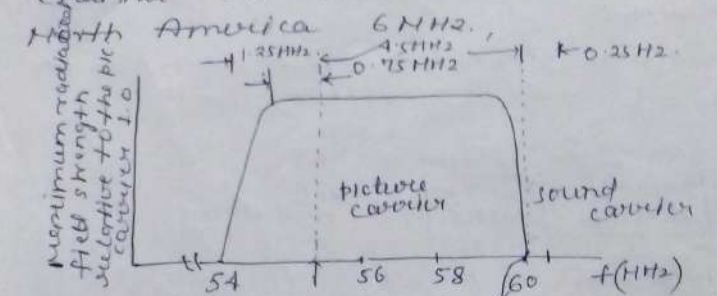 North America 6 MHz.,
1.25MHz. 4.5MHz 0.25Hz.
0.75MHz
Maximum radiated
field strength
relative to the pic
carrier 1.0
picture
carrier
sound
carrier
54 56 58 60 f(MHz)